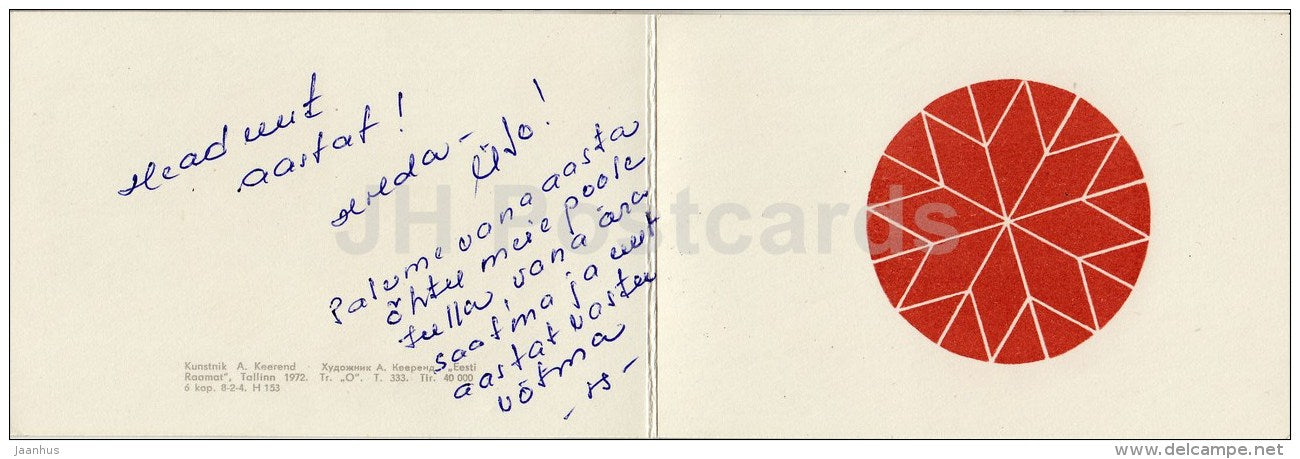 Head uut
aastat!
Ülo!
Palume vana aasta
õhtu meie poole
tulla, vana ära
saatma ja uut
aastat vastu
võtma
JH Postcards
Kunstnik A. Keerend · Художник А. Кееренд. „Eesti
Raamat", Tallinn 1972. Tr. „O". T. 333. Tir. 40 000
6 kop. 8-2-4. H 153
jaanhus
www.delcampe.net